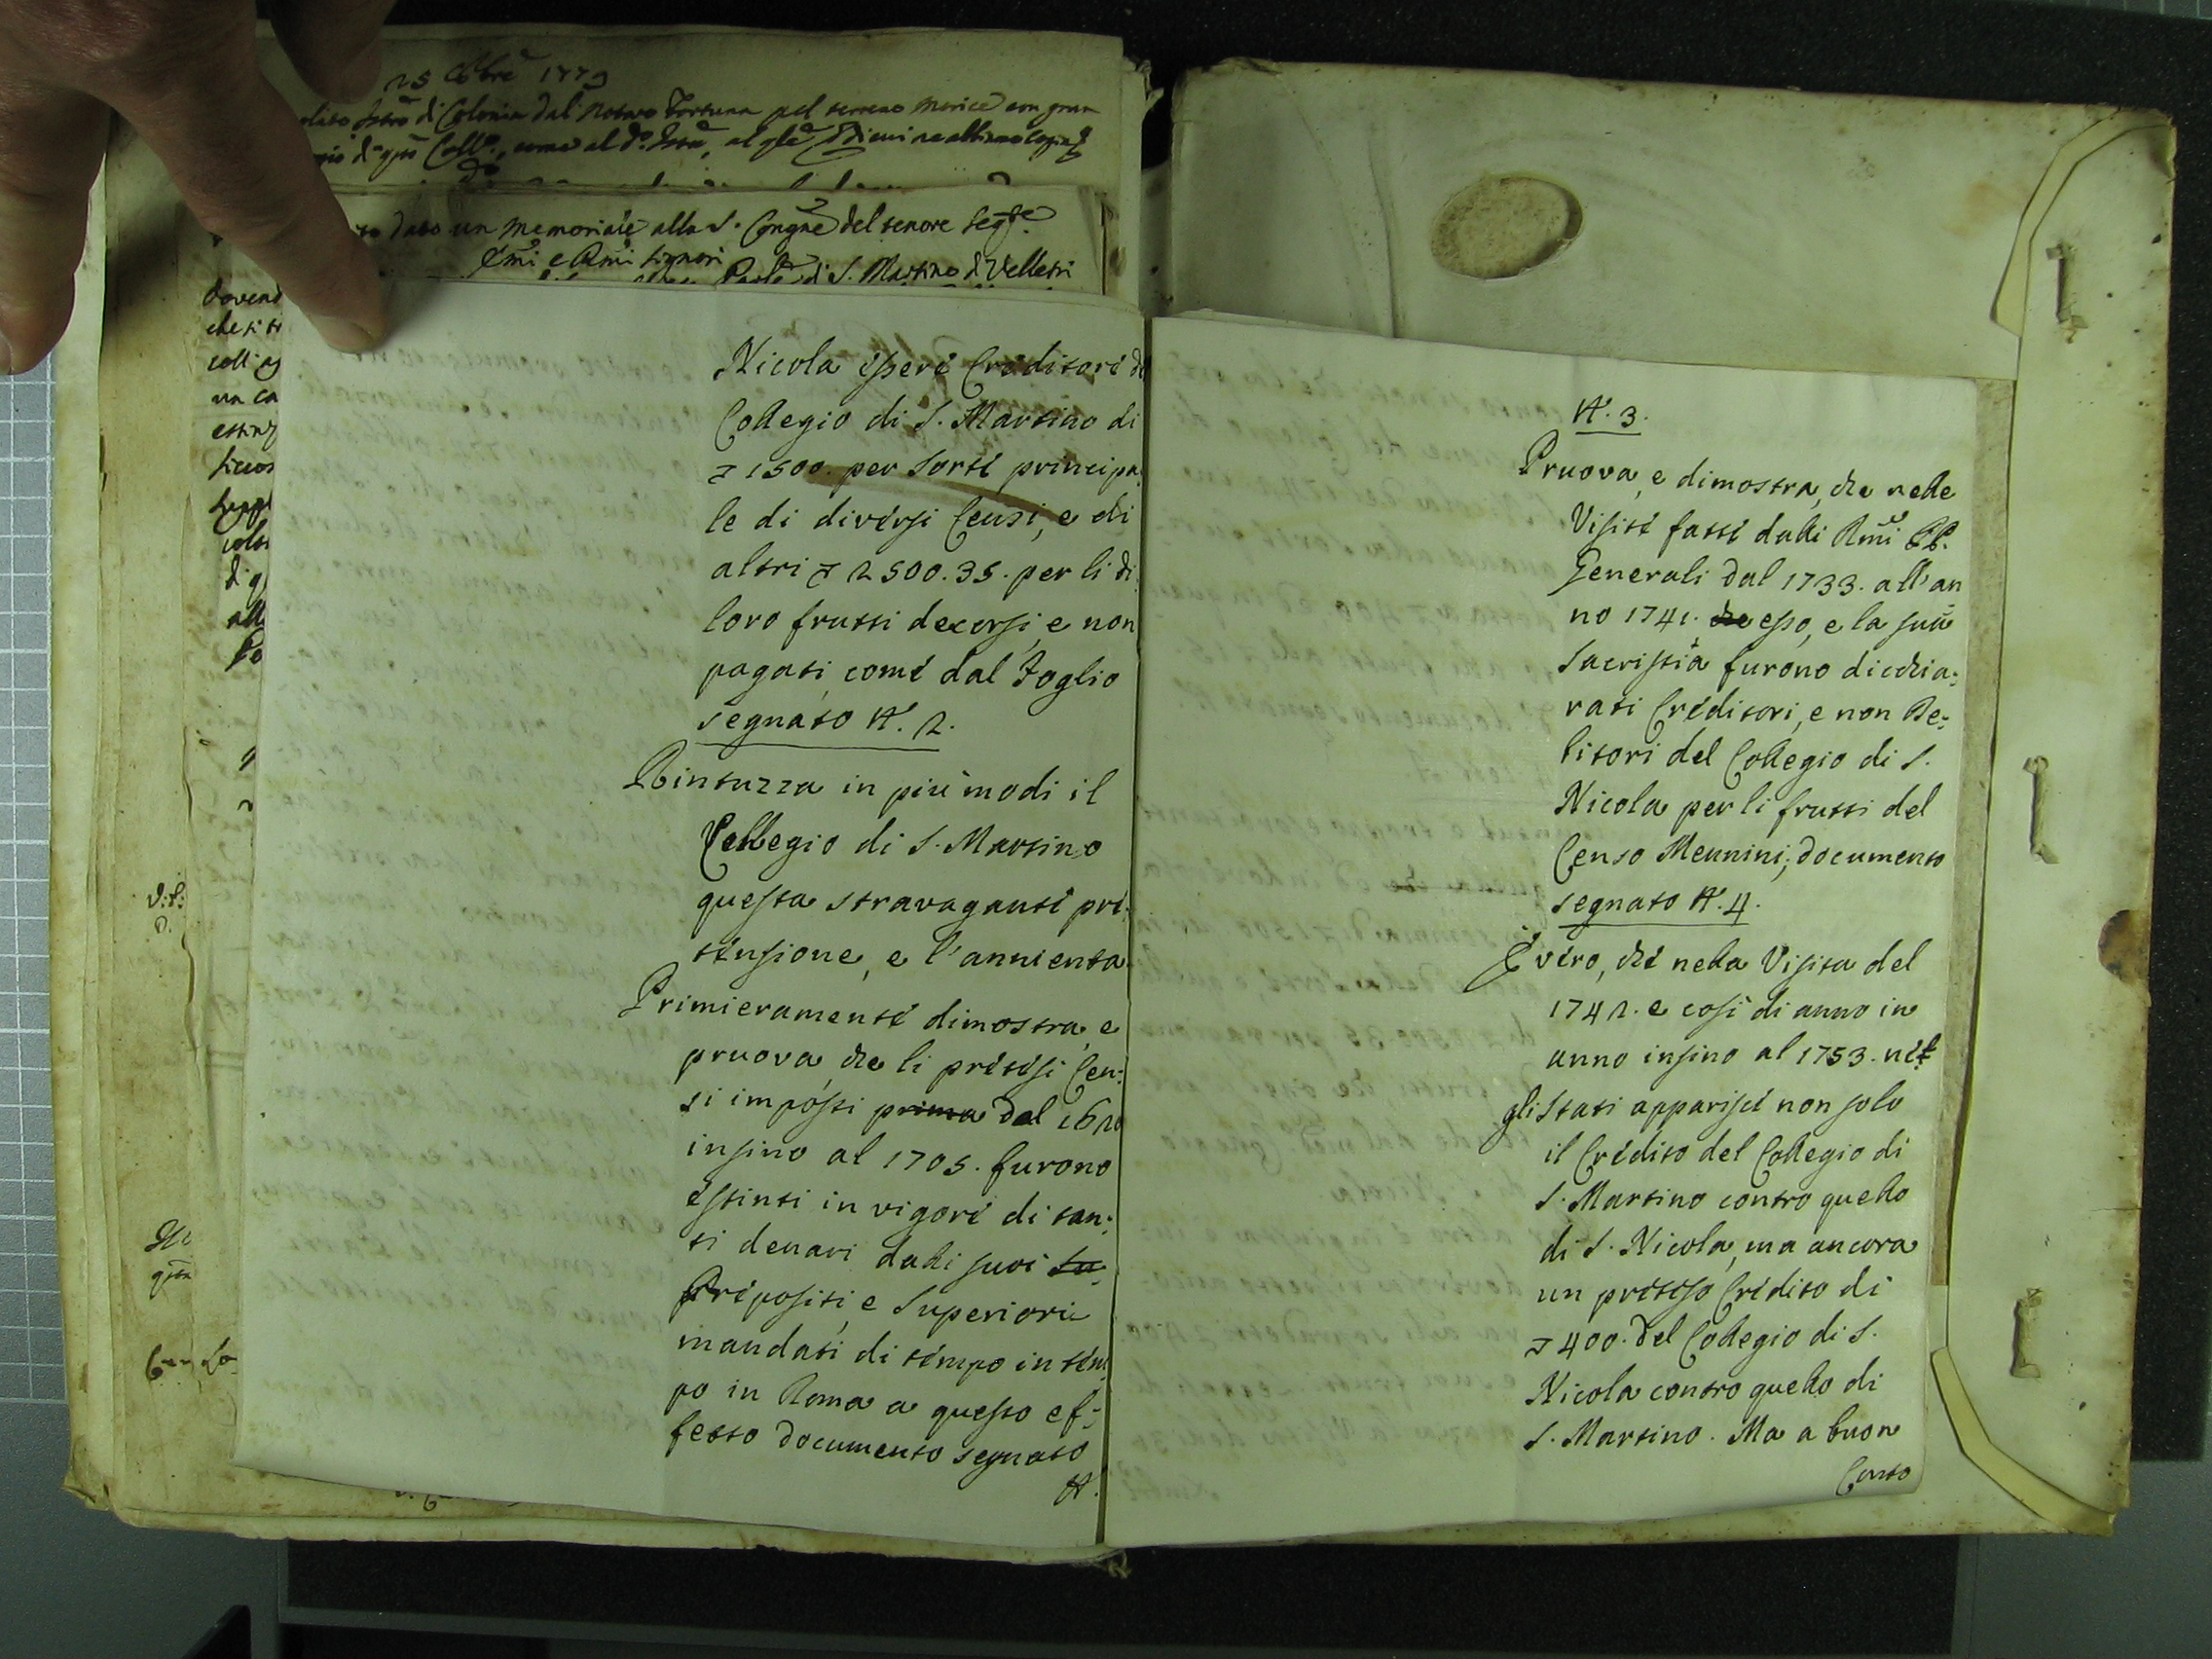 25 Xbre 1779
di Colonia dal Notaro Fortuna pel terreno Morice con gran
dato un memoriale alla S. Congne del tenore segte
Emi e Rmi Signori
di S. Martino di Velletri
Nicola essere Creditore de
Collegio di S. Martino di
1500. per sorte principa
le di diversi Censi, e di
altri 2500.35. per li di
loro frutti decorsi, e non
pagati, come dal Foglio
segnato N. 2.
Rintuzza in più modi il
Collegio di S. Martino
questa stravagante pre:
tensione, e l'annienta.
Primieramente dimostra, e
pruova, che li pretesi Cen:
si imposti prima dal 1620
insino al 1705. furono
estinti in vigore di tan:
ti denari dalli suoi Su
Prepositi, e Superiori
mandati di tempo in tem
po in Roma a questo ef:
fetto documento segnato
N.
N. 3.
Pruova, e dimostra, che nelle
Visite fatte dalli Rmi PP.
Generali dal 1733. all'an
no 1741. che esso, e la sua
Sacristia furono dicchia:
rati Creditori, e non De:
bitori del Collegio di S.
Nicola per li frutti del
Censo Mennini; documento
segnato N. 4.
È vero, che nella Visita del
1742. e così di anno in
anno insino al 1753. ne
gli Stati apparisce non solo
il Credito del Collegio di
S. Martino contro quello
di S. Nicola, ma ancora
un preteso Credito di
400. del Collegio di S.
Nicola contro quello di
S. Martino. Ma a buon
Conto